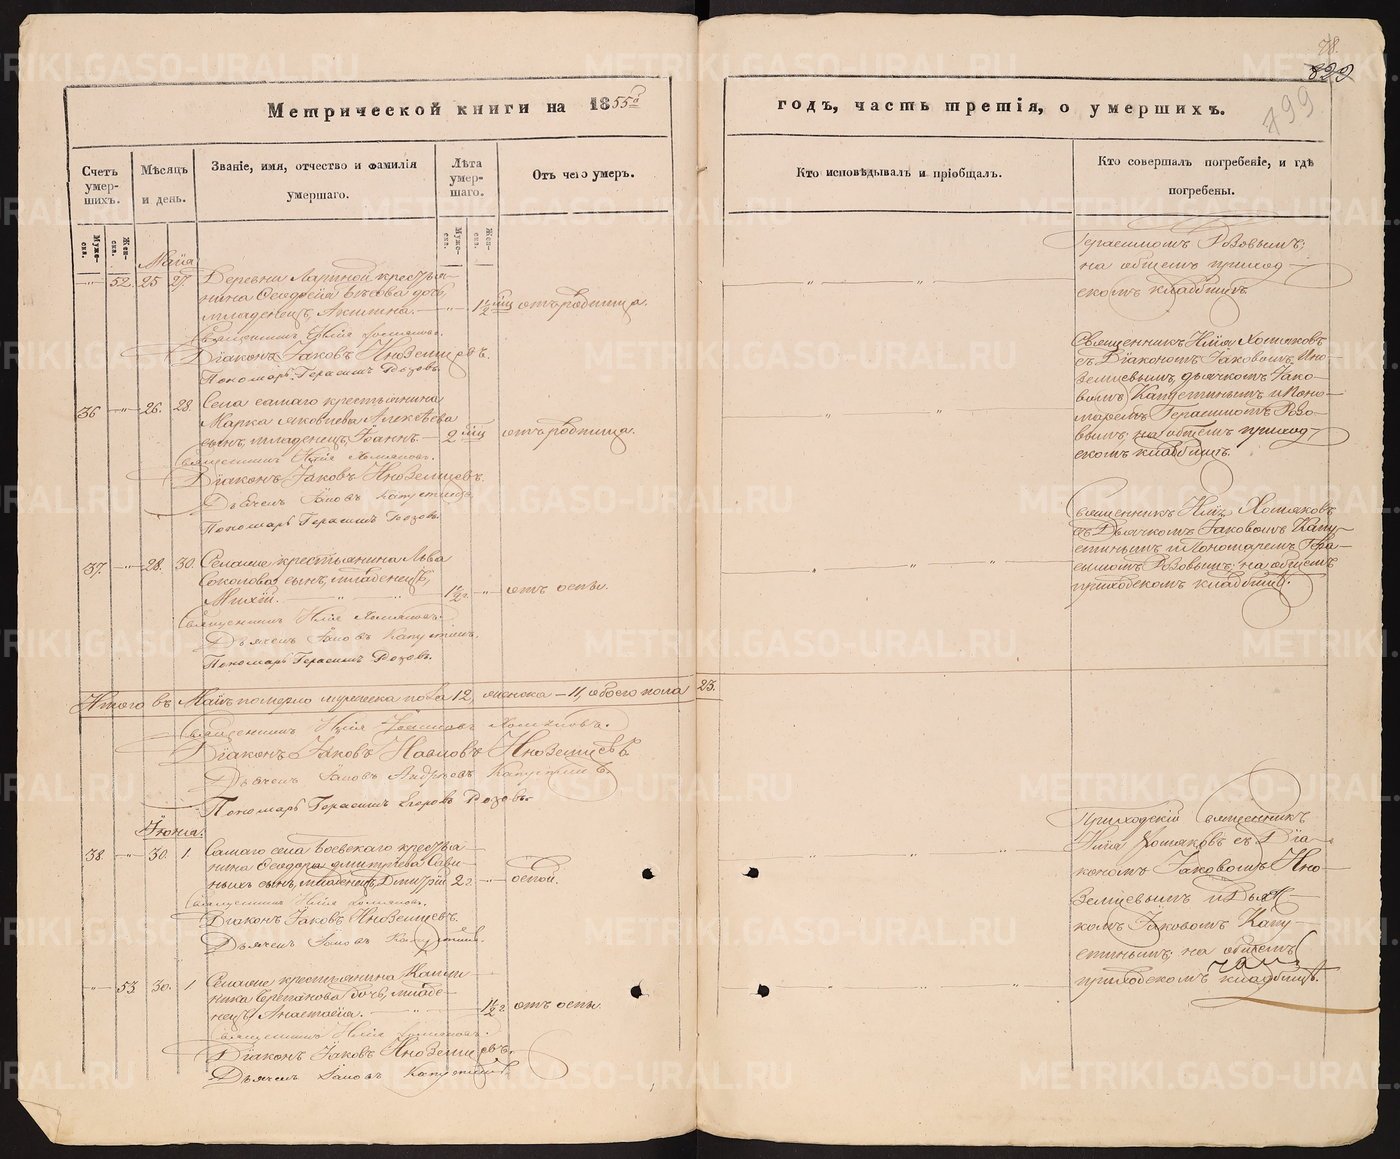 78.
829
799
Метрической книги на 1855й
годъ, часть третія, о умершихъ.
Счетъ умер-шихъ.
Мѣсяцъ и день.
Званіе, имя, отчество и фамилія умершаго.
Лѣта умер-шаго.
Отъ чего умеръ.
Кто исповѣдывалъ и пріобщалъ.
Кто совершалъ погребеніе, и гдѣ погребены.
Муже-ска.
Жен-ска.
Муже-ска.
Жен-ска.
Маія
52. 25 27. Деревни крестья-
нина Ѳеодосія дочь
младенецъ Акилина. 1½ мц отъ родимца.
Священникъ Илія Хомяковъ.
Діаконъ Іаковъ Иноземцевъ.
Пономарь Герасимъ Розовъ.
Герасимомъ Розовымъ;
на общемъ приход-
скомъ кладбищѣ
36 26. 28. Села самаго крестьянина
Марка Яковлева Алексѣева
сынъ, младенецъ Іоаннъ 2 мц отъ родимца.
Священникъ Илія Хомяковъ.
Діаконъ Іаковъ Иноземцевъ.
Дьячекъ Іаковъ Капустинъ.
Пономарь Герасимъ Розовъ.
Священникъ Илія Хомяковъ
съ Діакономъ Іаковомъ Ино-
земцевымъ, дьячкомъ Іако-
вомъ Капустинымъ и Поно-
маремъ Герасимомъ Розо-
вымъ; на общемъ приход-
скомъ кладбищѣ.
37. 28. 30. Села крестьянина Льва
Соколова сынъ, младенецъ,
1½ г. отъ оспы.
Священникъ Илія Хомяковъ.
Дьячекъ Іаковъ Капустинъ.
Пономарь Герасимъ Розовъ.
Священникъ Илія Хомяковъ
съ Дьячкомъ Іаковомъ Капу-
стинымъ и Пономаремъ Гера-
симомъ Розовымъ; на общемъ
приходскомъ кладбищѣ.
Итого въ Маѣ померло мужеска пола 12, женска – 11, обоего пола 23.
Священникъ Илія Хомяковъ.
Діаконъ Іаковъ Павловъ Иноземцевъ
Дьячекъ Іаковъ Андреевъ Капустинъ.
Пономарь Герасимъ Егоровъ Розовъ.
Іюня.
38. 30. 1. Самаго села Боевскаго крестья-
нина Ѳеодора Дмитріева Сави-
ныхъ сынъ, младенецъ Дмитрій 2 г. оспой.
Священникъ Илія Хомяковъ.
Діаконъ Іаковъ Иноземцевъ.
Дьячекъ Іаковъ Капустинъ.
Приходскій священникъ
Илія Хомяковъ съ Діа-
кономъ Іаковомъ Ино-
земцевымъ и Дьяч-
комъ Іаковомъ Капу-
стинымъ; на общемъ
приходскомъ кладбищѣ.
53 30. 1 крестьянина
дочь, младе-
нецъ Анастасія. 1½ г отъ оспы.
Священникъ Илія Хомяковъ.
Діаконъ Іаковъ Иноземцевъ.
Дьячекъ Іаковъ Капустинъ.
METRIKI.GASO-URAL.RU